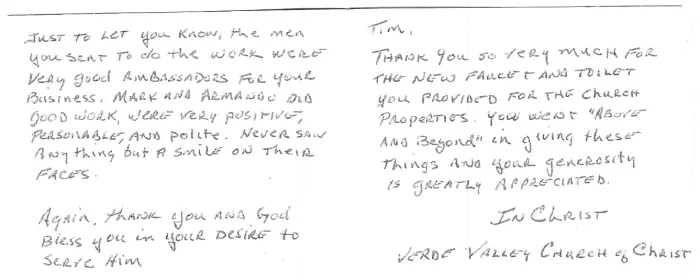 Just to let you know, the men
you sent to do the work were
very good ambassadors for your
business. Mark and Armando did
good work, were very positive,
personable, and polite. Never saw
anything but a smile on their
faces.
Again, thank you and God
bless you in your desire to
serve Him
Tim,
Thank you so very much for
the new faucet and toilet
you provided for the church
properties. You went "above
and beyond" in giving these
things and your generosity
is greatly appreciated.
In Christ
Verde Valley Church of Christ